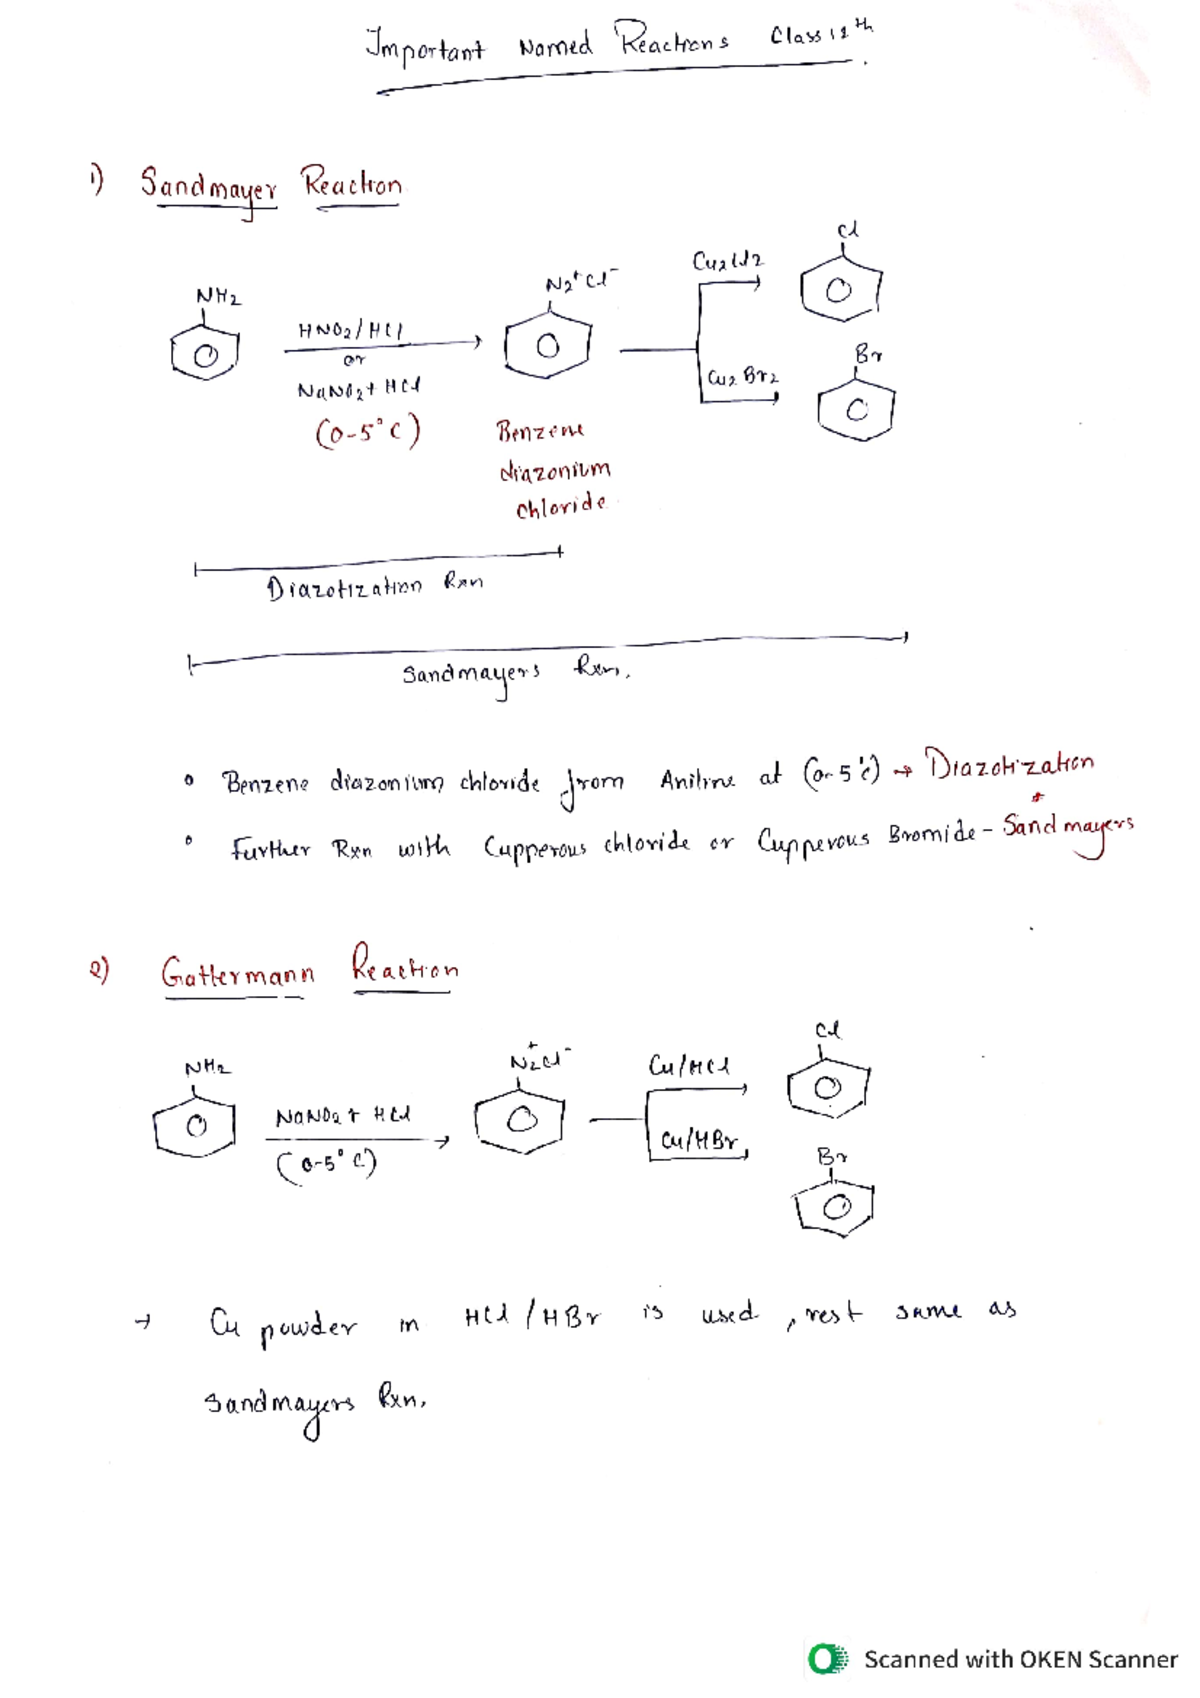 Important Named Reactions Class 12th.
1) Sandmayer Reaction
NH2
HNO2/HCl
or
NaNO2+ HCl
(0-5°C)
N2+Cl-
Benzene
diazonium
chloride
Cu2Cl2
Cl
Cu2Br2
Br
Diazotization Rxn
Sandmayers Rxn.
Benzene diazonium chloride from Aniline at (0-5°C) → Diazotization
Further Rxn with Cupperous chloride or Cupperous Bromide - Sandmayers
2) Gattermann Reaction
NH2
NaNO2 + HCl
(0-5°C)
N2+Cl-
Cu/HCl
Cl
Cu/HBr
Br
→ Cu powder in HCl/HBr is used, rest same as
Sandmayers Rxn.
Scanned with OKEN Scanner